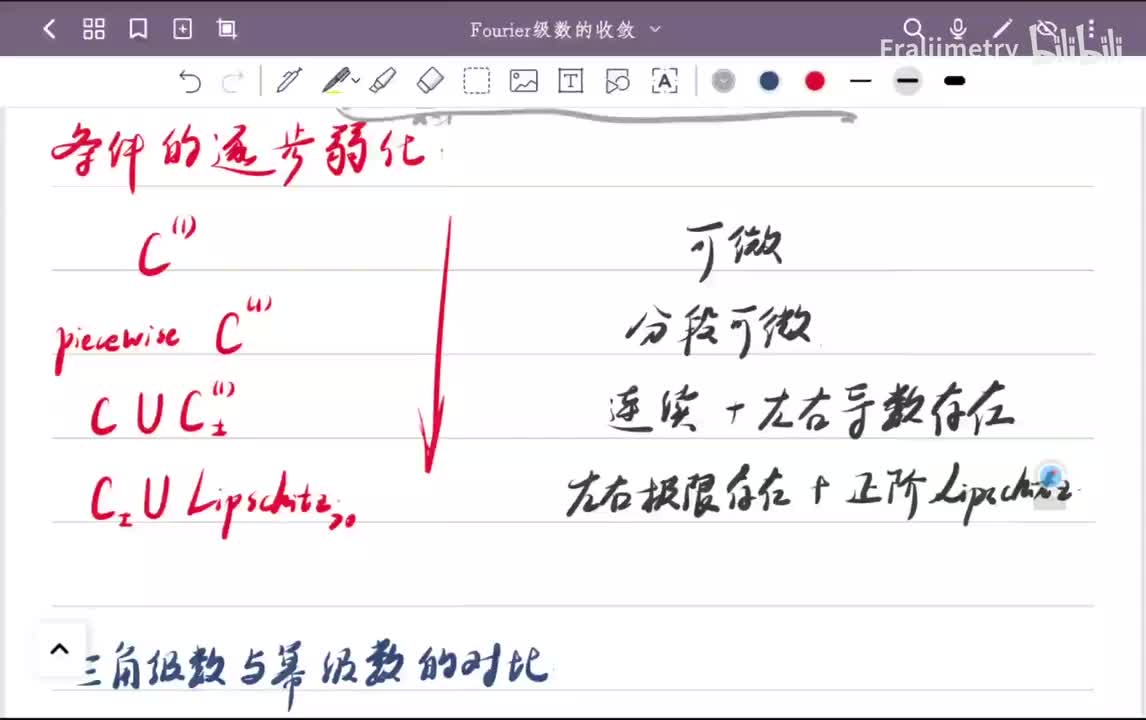 Fourier级数的收敛
Fraljimetry bilibili
条件的逐步弱化
C⁽¹⁾ 可微
piecewise C⁽¹⁾ 分段可微
C ∪ C±⁽¹⁾ 连续 + 左右导数存在
C± ∪ Lipschitz>0 左右极限存在 + 正阶Lipschitz
三角级数与幂级数的对比